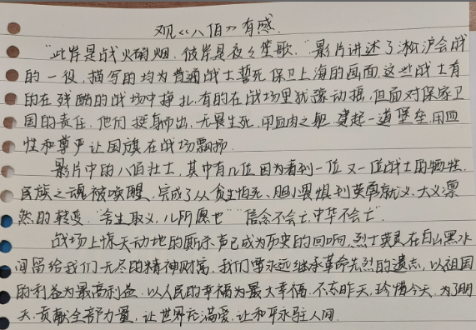 观《八佰》有感
"此岸是战火硝烟,彼岸是夜夜笙歌。"影片讲述了淞沪会战
的一役,描写的均为普通战士誓死保卫上海的画面,这些战士有
的在残酷的战场中挣扎,有的在战场里犹豫动摇,但面对保家卫
国的责任,他们挺身而出,无畏生死,用血肉之躯,筑起一道堡垒,用血
性和尊严让国旗在战场飘扬。
影片中的八佰壮士,其中有几位因为看到一位又一位战士的牺牲,
民族之魂被唤醒,完成了从贪生怕死、胆小畏惧到英勇就义、大义凛
然的转变。"舍生取义,儿所愿也""信念不会亡,中华不会亡"
战场上惊天动地的厮杀声已成为历史的回响,烈士英灵在白山黑水
间留给我们无尽的精神财富,我们要永远继承革命先烈的遗志,以祖国
的利益为最高利益,以人民的幸福为最大幸福,不忘昨天,珍惜今天,为了明
天贡献全部力量,让世界充满爱,让和平永驻人间。